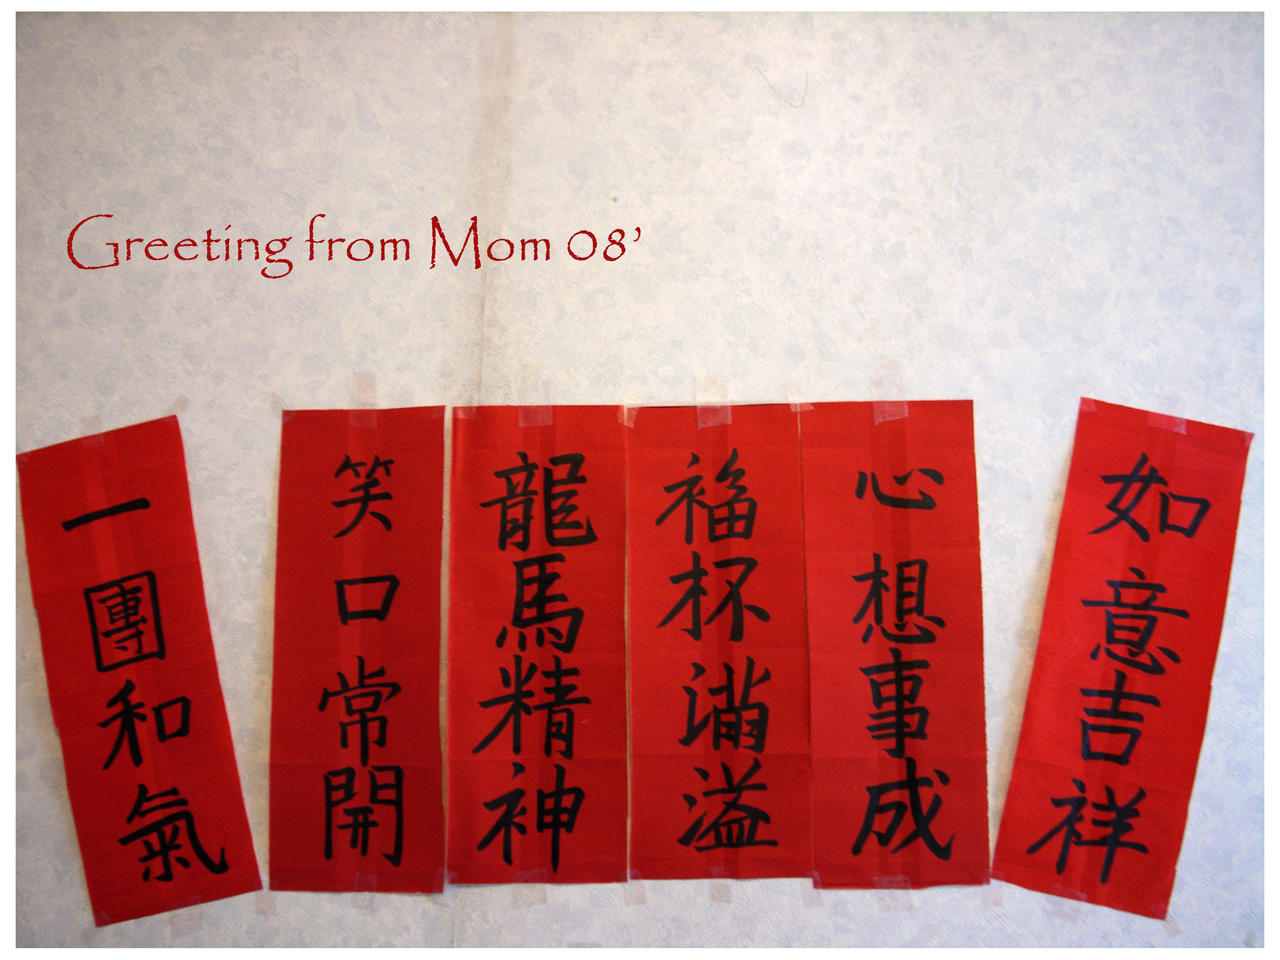 Greeting from Mom 08’
如意吉祥
心想事成
福杯滿溢
龍馬精神
笑口常開
一團和氣